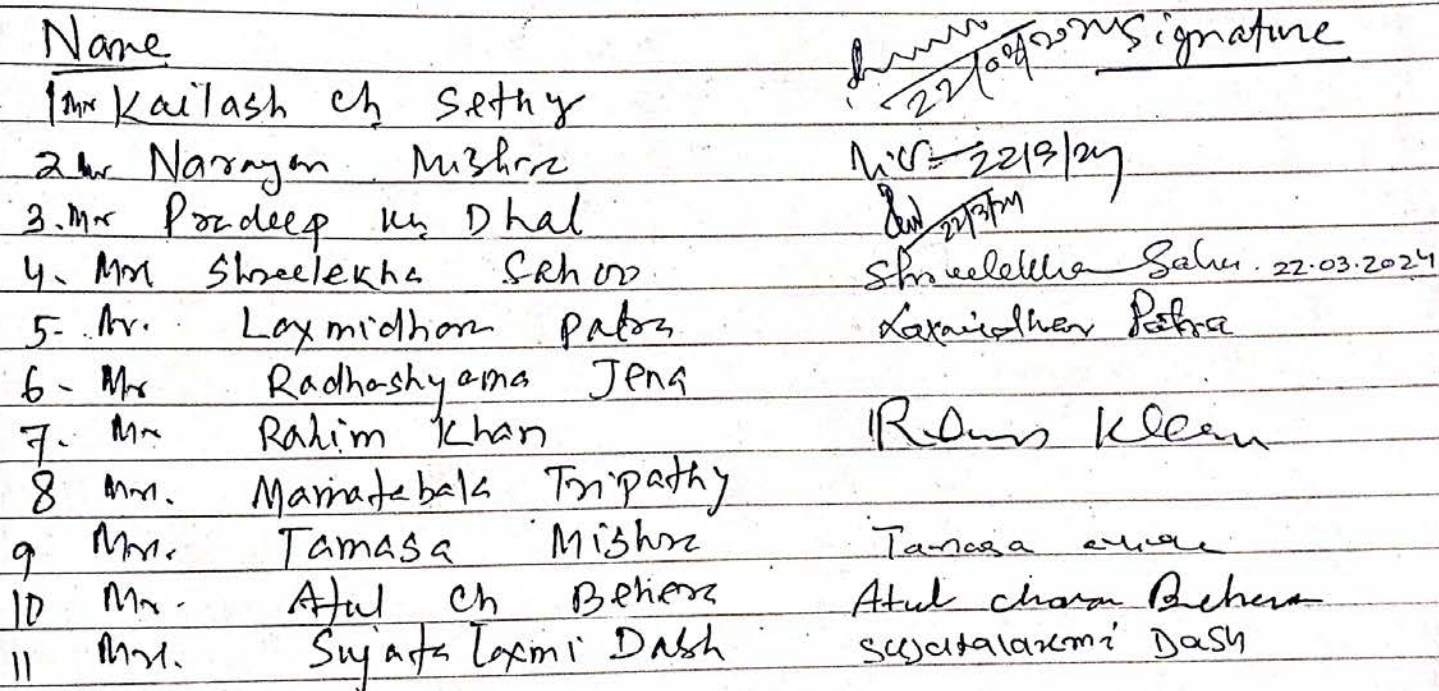 Name Signature
1 Mr Kailash ch Sethy 22/03/2024
2 Mr Narayan Mishra 22/3/24
3. Mr Pradeep Kr Dhal 22/3/24
4. Mrs Shreelekha Sahoo Shreelekha Sahu. 22.03.2024
5- Mr. Laxmidhar Patra Laxmidhar Patra
6 - Mr Radhashyama Jena
7. Mr Rahim Khan Rahim Khan
8 Mrs. Mamatabala Tripathy
9 Mrs. Tamasa Mishra Tamasa
10 Mr. Atul ch Behera Atul charan Behera
11 Mrs. Sujata Laxmi Dash Sujatalaxmi Dash